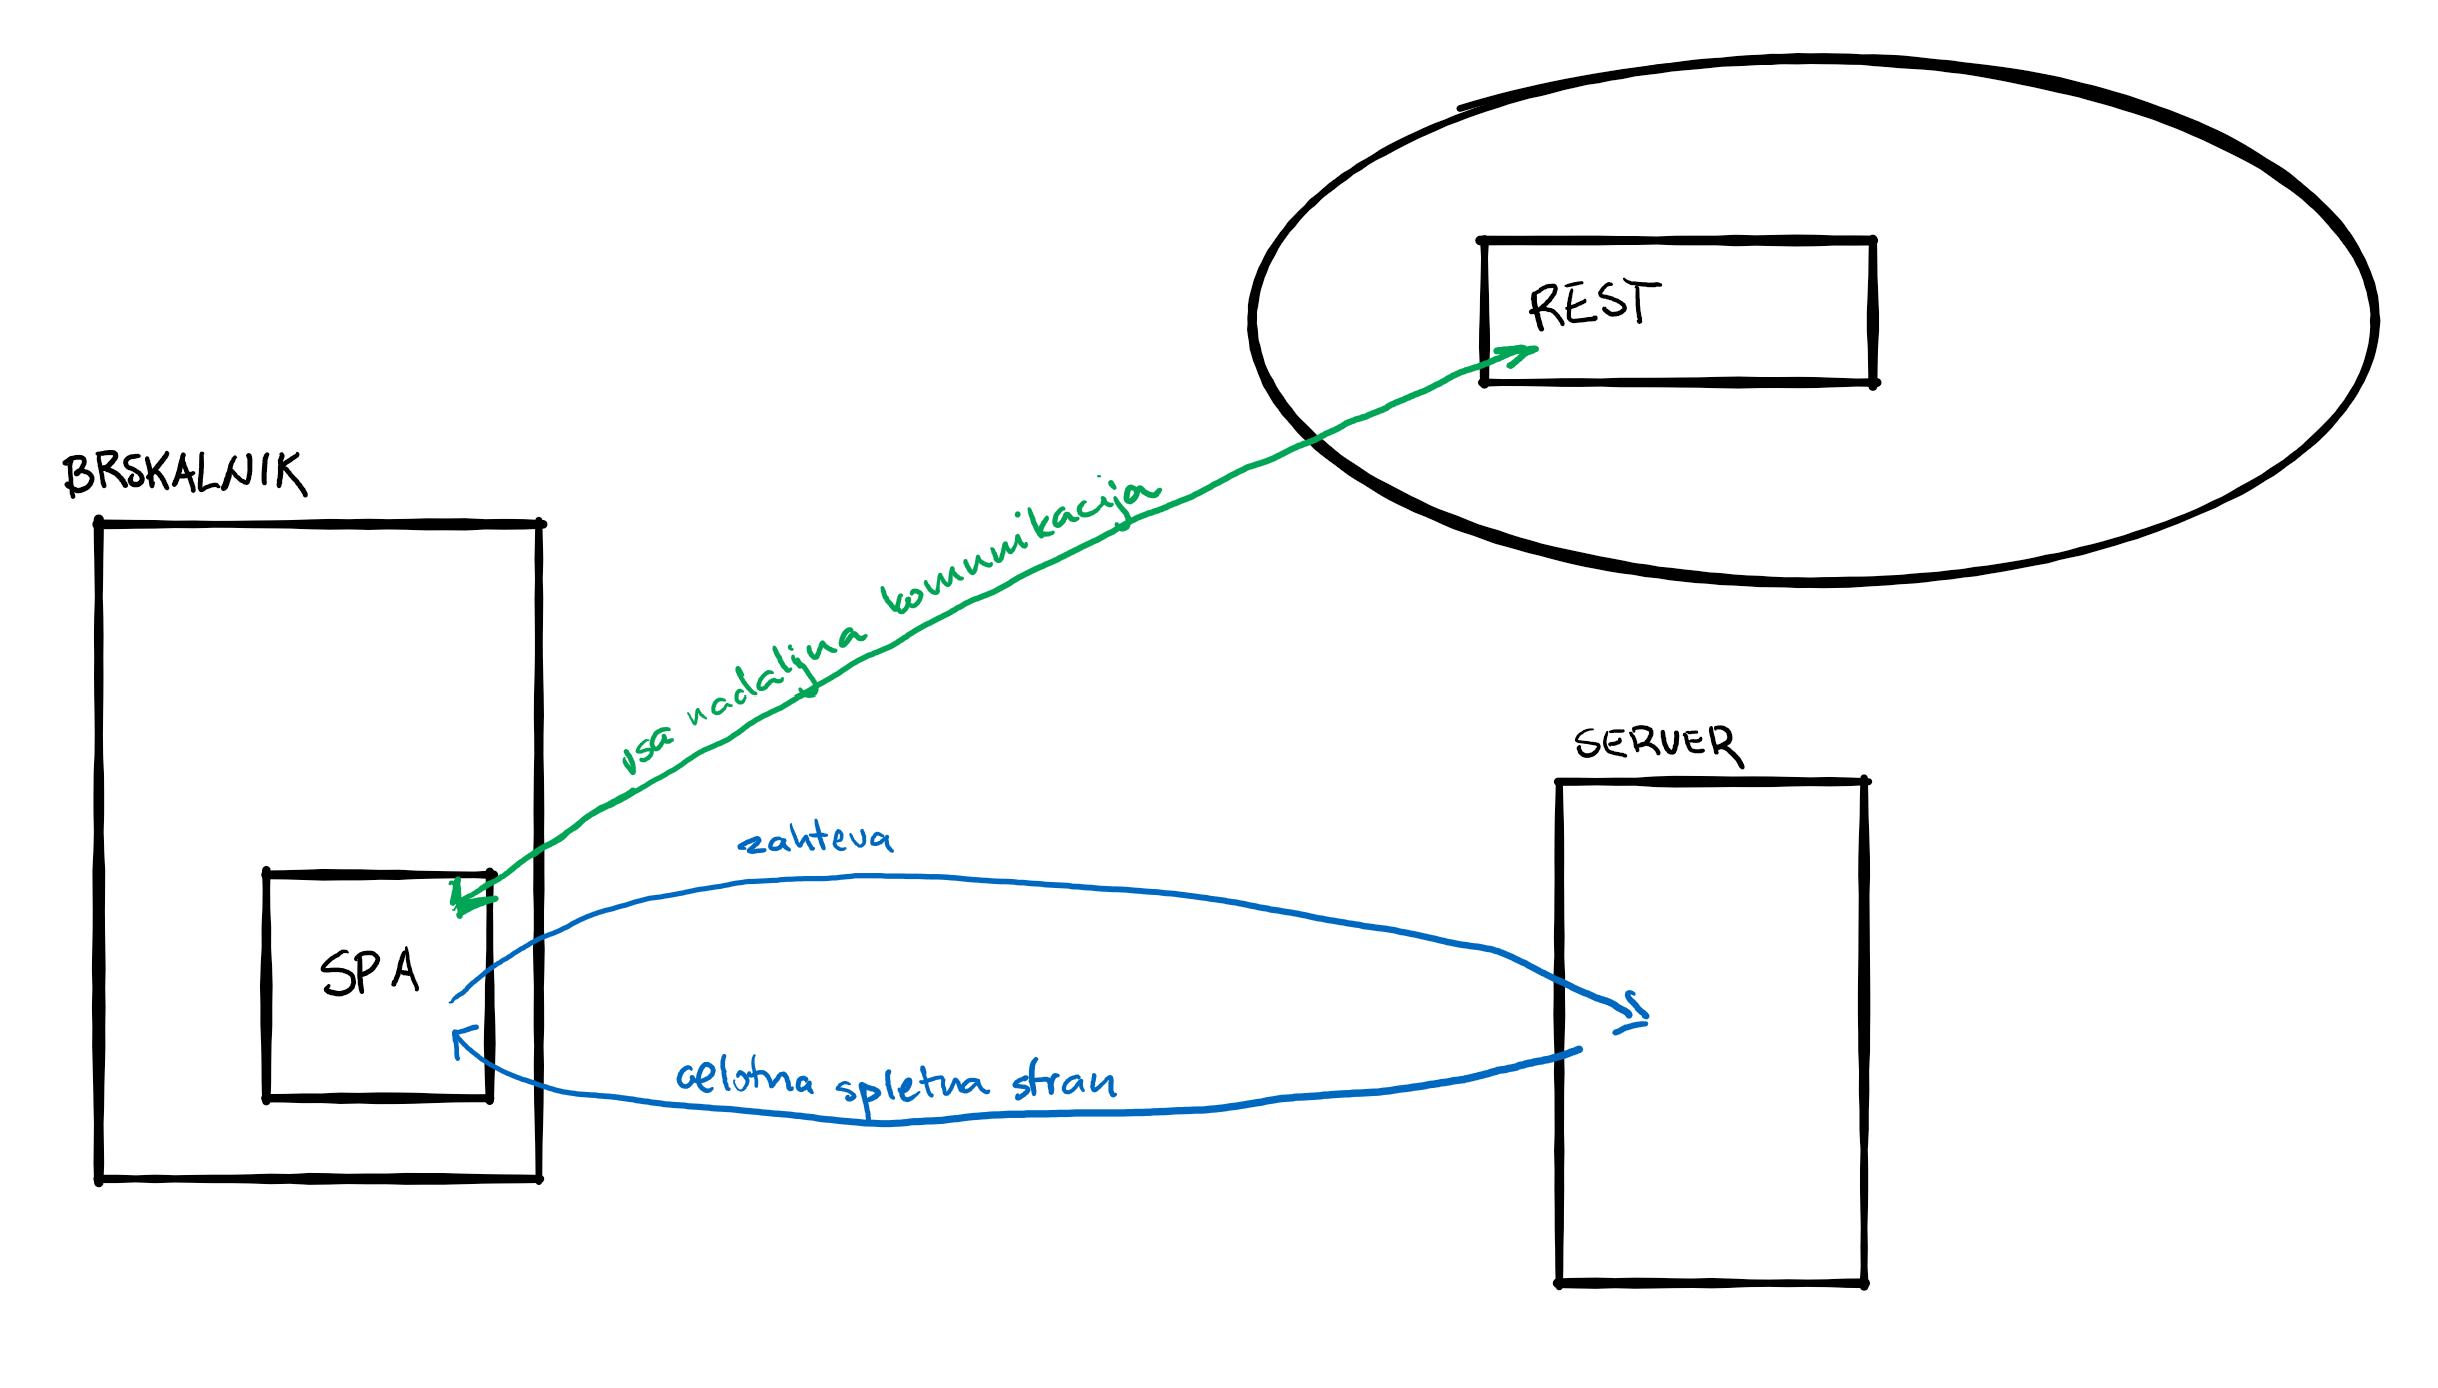 REST
BRSKALNIK
vsa nadaljna komunikacija
SERVER
zahteva
SPA
celotna spletna stran